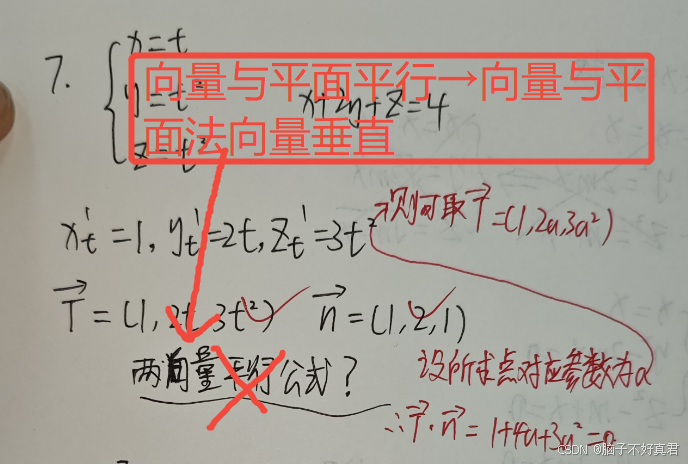 7.
x=t
y=t²
z=t³
x+2y+z=4
向量与平面平行→向量与平
面法向量垂直
x't=1, y't=2t, z't=3t²
则可取T=(1,2a,3a²)
T=(1,2t,3t²) n=(1,2,1)
两向量平行公式?
设所求点对应参数为a
∴T·n=1+4a+3a²=0
CSDN @脑子不好真君